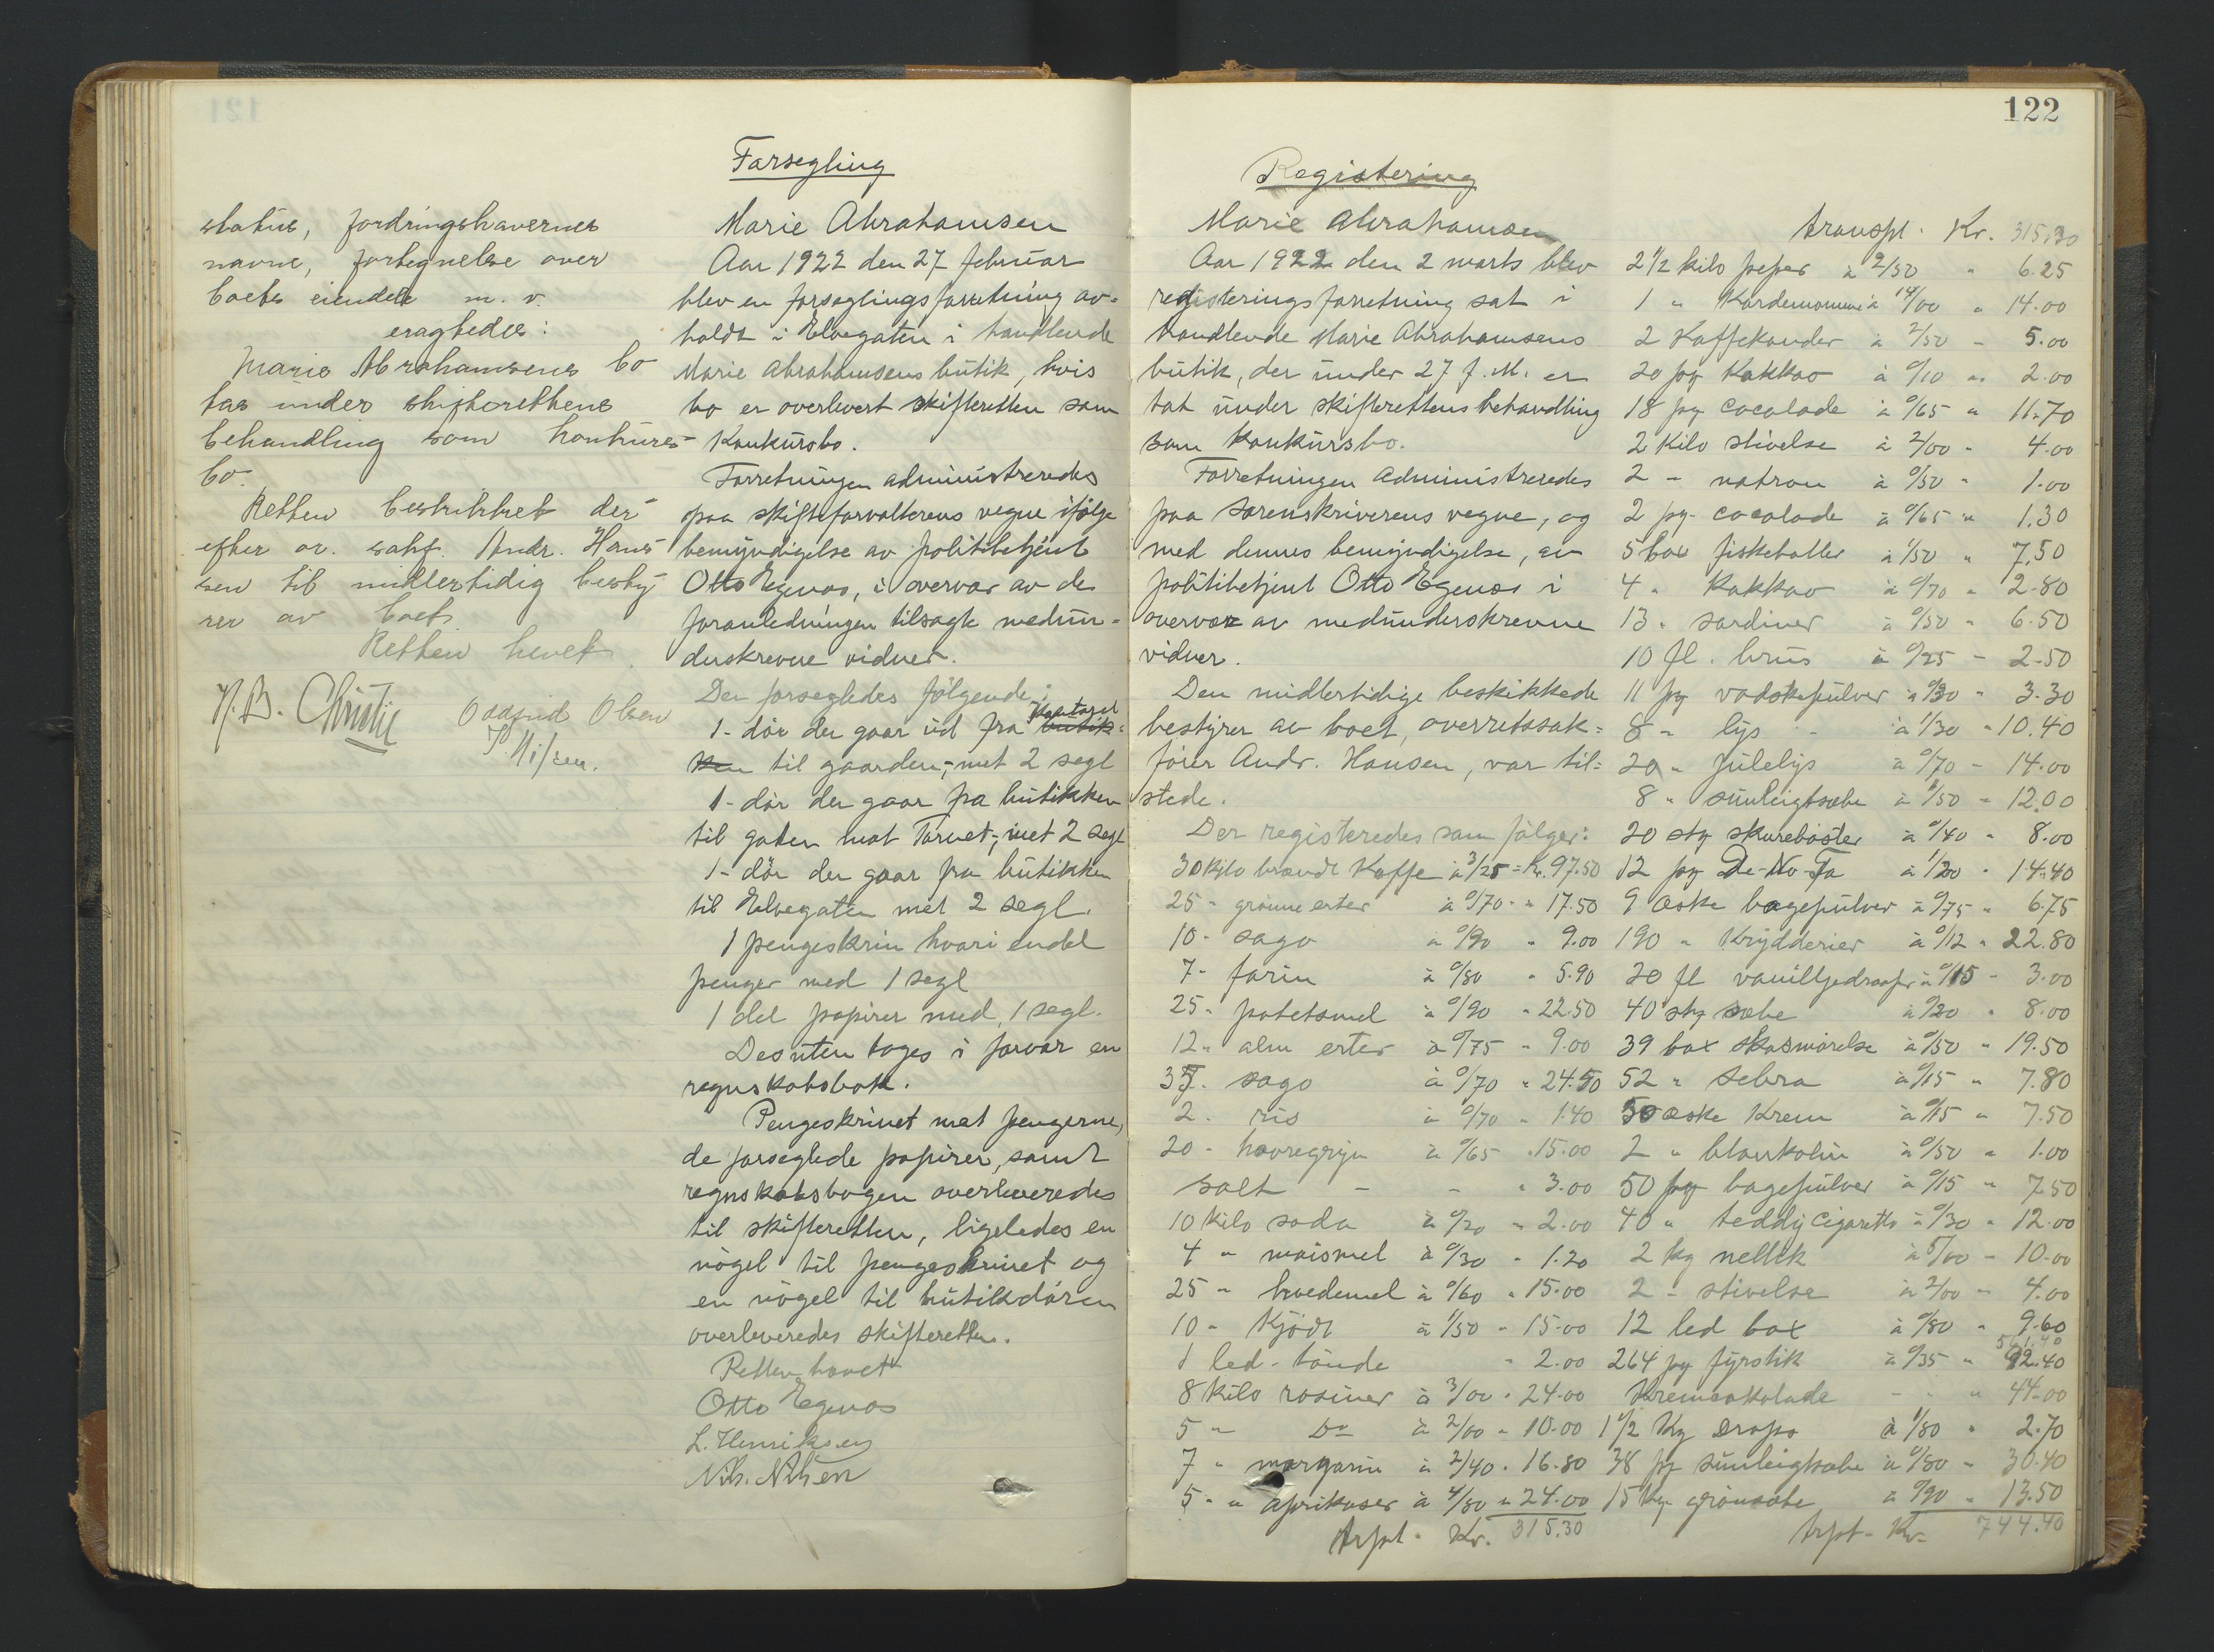 122
status, fordringshavernes
navne, fortegnelse over
boets eiendele m. v.
eragtedes:
Marie Abrahamsens bo
tas under skifterettens
behandling som konkurs-
bo.
Retten beskikket der-
efter or. sakf. Andr. Han-
sen til midlertidig besty-
rer av boet.
Retten hevet.
N. B. Christie Oddfrid Olsen
P. Nilsen.
Forsegling
Marie Abrahamsen
Aar 1922 den 27 februar
blev en forseglingsforretning av-
holdt i Elvegaten i handlende
Marie Abrahamsens butik, hvis
bo er overlevert skifteretten som
Konkursbo.
Forretningen administreredes
paa skifteforvalterens vegne ifölge
bemyndigelse av politibetjent
Otto Egenæs, i overvær av de
foranledningen tilsagte medun-
derskrevne vidner.
Der forsegledes fölgende:
1- dör der gaar ud fra butik-
ken til gaarden, met 2 segl
1- dör der gaar fra butikken
til gaten mot Torvet, met 2 segl
1- dör der gaar fra butikken
til Elvegaten met 2 segl.
1 pengeskrin hvori endel
penger med 1 segl
1 del papirer med 1 segl.
Desuten toges i forvar en
regnskabsbok.
Pengeskrinet met pengerne,
de forseglede papirer, samt
regnskabsbogen overleveredes
til skifteretten, ligeledes en
nögel til pengeskrinet og
en nögel til butikdören
overleveredes skifteretten.
Retten hævet
Otto Egenæs
L. Henriksen
Nils. Nilsen
Registering
Marie Abrahamsen
Aar 1922 den 2 marts blev
registeringsforretning sat i
handlende Marie Abrahamsens
butik, der under 27 f. M. er
tat under skifterettens behandling
som konkursbo.
Forretningen administreredes
paa sorenskriverens vegne, og
med dennes bemyndigelse, av
politibetjent Otto Egenæs i
overvær av medunderskrevne
vidner.
Den midlertidige beskikkede
bestyrer av boet, overretssak=
förer Andr. Hansen, var til=
stede.
Der registeredes som fölger:
30 kilo brændt Kaffe à 3/25 = Kr. 97.50
25 - grönne erter à 0/70 - " 17.50
10 - sago à 0/90 " 9.00
7 - farin à 0/80 " 5.90
25 - potetsmel à 0/90 " 22.50
12 - alm erter à 0/75 " 9.00
35 - sago à 0/70 " 24.50
2 - ris à 0/70 " 1.40
20 - havregryn à 0/65 " 15.00
salt - - " 3.00
10 kilo soda à 0/20 " 2.00
4 " maismel à 0/30 " 1.20
25 " hvedemel à 0/60 " 15.00
10 - Kjödt à 1/50 " 15.00
1 led. tönde " 2.00
8 kilo rosiner à 3/00 " 24.00
5 " Do à 2/00 " 10.00
7 " margarin à 2/40 " 16.80
5 " aprikoser à 4/80 " 24.00
trpt. Kr. 315.30
transpt. Kr. 315.30
2 1/2 kilo peper à 2/50 " 6.25
1 " Kardemomme à 14/00 " 14.00
2 Kaffekander à 2/50 " 5.00
20 pg Kakkao à 0/10 " 2.00
18 pg cocolade à 0/65 " 11.70
2 Kilo stivelse à 2/00 " 4.00
2 - natron à 0/50 " 1.00
2 pg. cocolade à 0/65 " 1.30
5 box fiskeboller à 1/50 " 7.50
4 " Kakkao à 0/70 " 2.80
13 " sardiner à 0/50 " 6.50
10 fl. brus à 0/25 - 2.50
11 pg vadskepulver à 0/30 " 3.30
8 " lys à 1/30 " 10.40
20 " julelys à 0/70 - 14.00
8 " sunleigtsæbe à 1/50 " 12.00
20 stg skurebörster à 0/40 " 8.00
12 pg De-No-Fa à 1/20 " 14.40
9 æske bagepulver à 0/75 " 6.75
190 " Krydderier à 0/12 " 22.80
20 fl vanilljedraaper à 0/15 - 3.00
40 stg sæbe à 0/20 " 8.00
39 box skosmörelse à 0/50 " 19.50
52 " Sebra à 0/15 " 7.80
50 æske Krem à 0/15 " 7.50
2 " blankolin à 0/50 " 1.00
50 pg bagepulver à 0/15 " 7.50
40 " teddy Cigaretts à 0/30 " 12.00
2 kg nellik à 5/00 - 10.00
2 - stivelse à 2/00 - 4.00
12 led box à 0/80 " 9.60
264 pg fyrstik à 0/35 " 92.40
Kremcokolade - " 44.00
1 1/2 Kg Drops à 1/80 " 2.70
38 pg sunleigtsæbe à 0/80 " 30.40
15 kg. grönsæbe à 0/90 " 13.50
trpt. Kr. 744.40